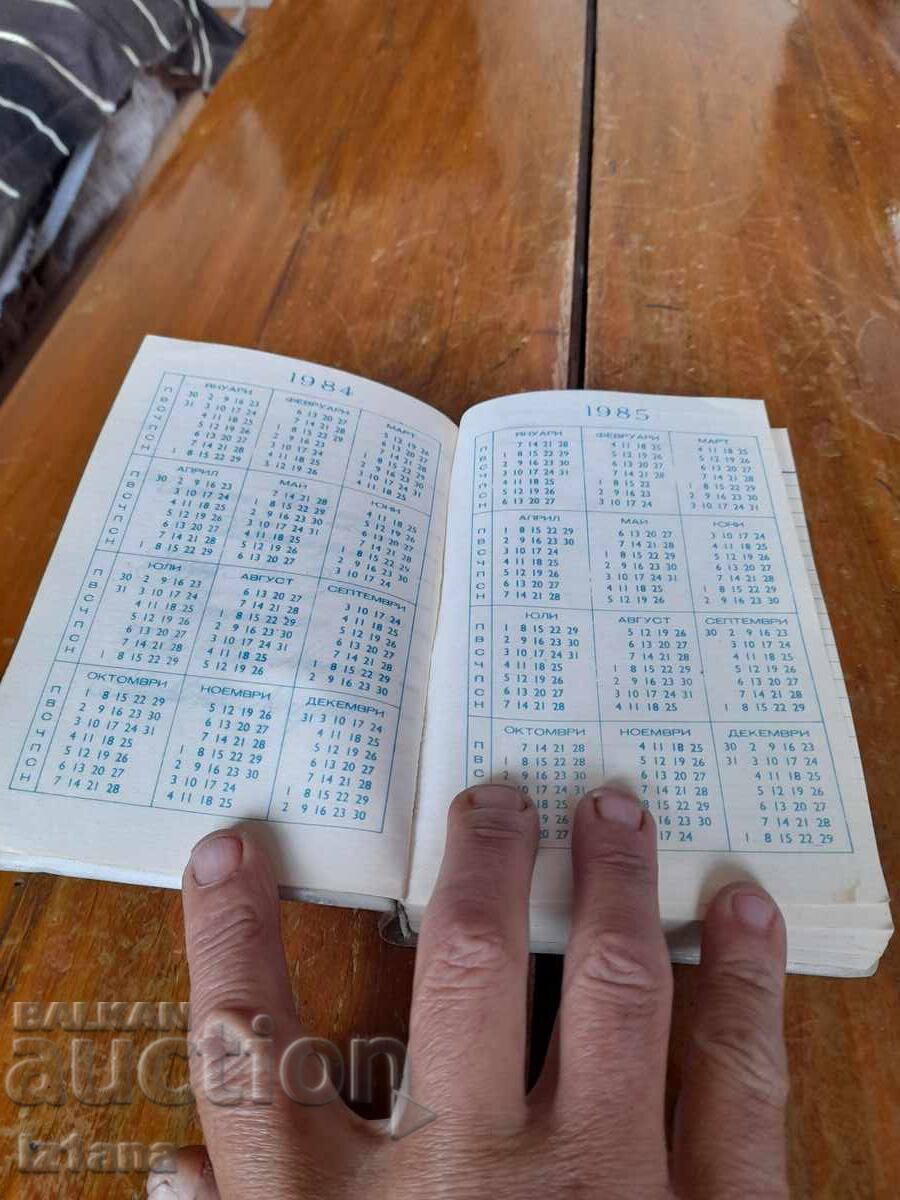 1984
ЯНУАРИ ФЕВРУАРИ МАРТ
П 30 2 9 16 23 6 13 20 27 5 12 19 26
В 31 3 10 17 24 7 14 21 28 6 13 20 27
С 4 11 18 25 1 8 15 22 29 7 14 21 28
Ч 5 12 19 26 2 9 16 23 1 8 15 22 29
П 6 13 20 27 3 10 17 24 2 9 16 23 30
С 7 14 21 28 4 11 18 25 3 10 17 24 31
Н 1 8 15 22 29 5 12 19 26 4 11 18 25
АПРИЛ МАИ ЮНИ
П 30 2 9 16 23 7 14 21 28 4 11 18 25
В 3 10 17 24 1 8 15 22 29 5 12 19 26
С 4 11 18 25 2 9 16 23 30 6 13 20 27
Ч 5 12 19 26 3 10 17 24 31 7 14 21 28
П 6 13 20 27 4 11 18 25 1 8 15 22 29
С 7 14 21 28 5 12 19 26 2 9 16 23 30
Н 1 8 15 22 29 6 13 20 27 3 10 17 24
ЮЛИ АВГУСТ СЕПТЕМВРИ
П 30 2 9 16 23 6 13 20 27 3 10 17 24
В 31 3 10 17 24 7 14 21 28 4 11 18 25
С 4 11 18 25 1 8 15 22 29 5 12 19 26
Ч 5 12 19 26 2 9 16 23 30 6 13 20 27
П 6 13 20 27 3 10 17 24 31 7 14 21 28
С 7 14 21 28 4 11 18 25 1 8 15 22 29
Н 1 8 15 22 29 5 12 19 26 2 9 16 23 30
ОКТОМВРИ НОЕМВРИ ДЕКЕМВРИ
П 1 8 15 22 29 5 12 19 26 31 3 10 17 24
В 2 9 16 23 30 6 13 20 27 4 11 18 25
С 3 10 17 24 31 7 14 21 28 5 12 19 26
Ч 4 11 18 25 1 8 15 22 29 6 13 20 27
П 5 12 19 26 2 9 16 23 30 7 14 21 28
С 6 13 20 27 3 10 17 24 1 8 15 22 29
Н 7 14 21 28 4 11 18 25 2 9 16 23 30
1985
ЯНУАРИ ФЕВРУАРИ МАРТ
П 7 14 21 28 4 11 18 25 4 11 18 25
В 1 8 15 22 29 5 12 19 26 5 12 19 26
С 2 9 16 23 30 6 13 20 27 6 13 20 27
Ч 3 10 17 24 31 7 14 21 28 7 14 21 28
П 4 11 18 25 1 8 15 22 1 8 15 22 29
С 5 12 19 26 2 9 16 23 2 9 16 23 30
Н 6 13 20 27 3 10 17 24 3 10 17 24 31
АПРИЛ МАИ ЮНИ
П 1 8 15 22 29 6 13 20 27 3 10 17 24
В 2 9 16 23 30 7 14 21 28 4 11 18 25
С 3 10 17 24 1 8 15 22 29 5 12 19 26
Ч 4 11 18 25 2 9 16 23 30 6 13 20 27
П 5 12 19 26 3 10 17 24 31 7 14 21 28
С 6 13 20 27 4 11 18 25 1 8 15 22 29
Н 7 14 21 28 5 12 19 26 2 9 16 23 30
ЮЛИ АВГУСТ СЕПТЕМВРИ
П 1 8 15 22 29 5 12 19 26 30 2 9 16 23
В 2 9 16 23 30 6 13 20 27 3 10 17 24
С 3 10 17 24 31 7 14 21 28 4 11 18 25
Ч 4 11 18 25 1 8 15 22 29 5 12 19 26
П 5 12 19 26 2 9 16 23 30 6 13 20 27
С 6 13 20 27 3 10 17 24 31 7 14 21 28
Н 7 14 21 28 4 11 18 25 1 8 15 22 29
ОКТОМВРИ НОЕМВРИ ДЕКЕМВРИ
П 7 14 21 28 4 11 18 25 30 2 9 16 23
В 1 8 15 22 29 5 12 19 26 31 3 10 17 24
С 2 9 16 23 30 6 13 20 27 4 11 18 25
7 14 21 28 5 12 19 26
22 29 6 13 20 27
23 30 7 14 21 28
17 24 1 8 15 22 29
BALKAN
auction
iz1ana